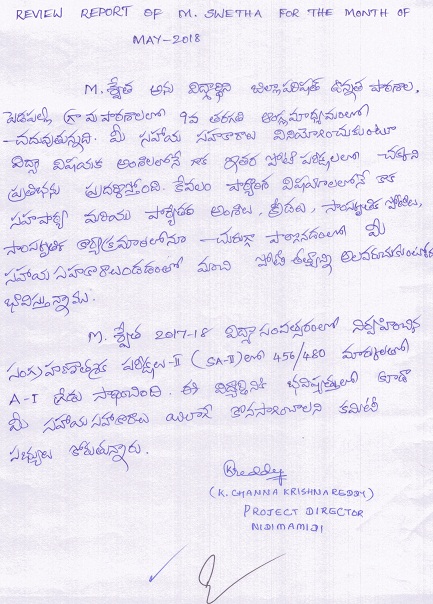 REVIEW REPORT OF M. SWETHA FOR THE MONTH OF
MAY-2018
M. శ్వేత అను విద్యార్థిని జిల్లాపరిషత్ ఉన్నత పాఠశాల,
పెడపల్లి గ్రామ పాఠశాలలో 9వ తరగతి ఆంగ్లమాధ్యమంలో
చదువుతున్నది. మీ సహాయ సహకారాలు వినియోగించుకుంటూ
విద్యా విషయక అంశాలలోనే గాక ఇతర పోటీ పరీక్షలలో చక్కని
ప్రతిభను ప్రదర్శిస్తోంది. కేవలం పాఠ్యాంశ విషయాలలోనే కాక
సహపాఠ్య మరియు పాఠ్యేతర అంశాలు, క్రీడలు, సాంస్కృతిక పోటీలు,
సాంస్కృతిక కార్యక్రమాలలోనూ చురుగ్గా పాల్గొనడంలో మీ
సహాయ సహకారాలందడంలో మంచి పోటీ తత్వాన్ని
భావిస్తున్నాము.
M. శ్వేత 2017-18 విద్యా సంవత్సరంలో నిర్వహించిన
సంగ్రహణాత్మక పరీక్షలు-II (SA-II)లో 456/480 మార్కులతో
A-I గ్రేడు సాధించింది. ఈ విద్యార్థినికి భవిష్యత్తులో కూడా
మీ సహాయ సహకారాలు యిలాగే కొనసాగించాలని కమిటీ
సభ్యులు కోరుతున్నారు.
(K. CHANNA KRISHNA REDDY)
PROJECT DIRECTOR
NIDIMAMIDI